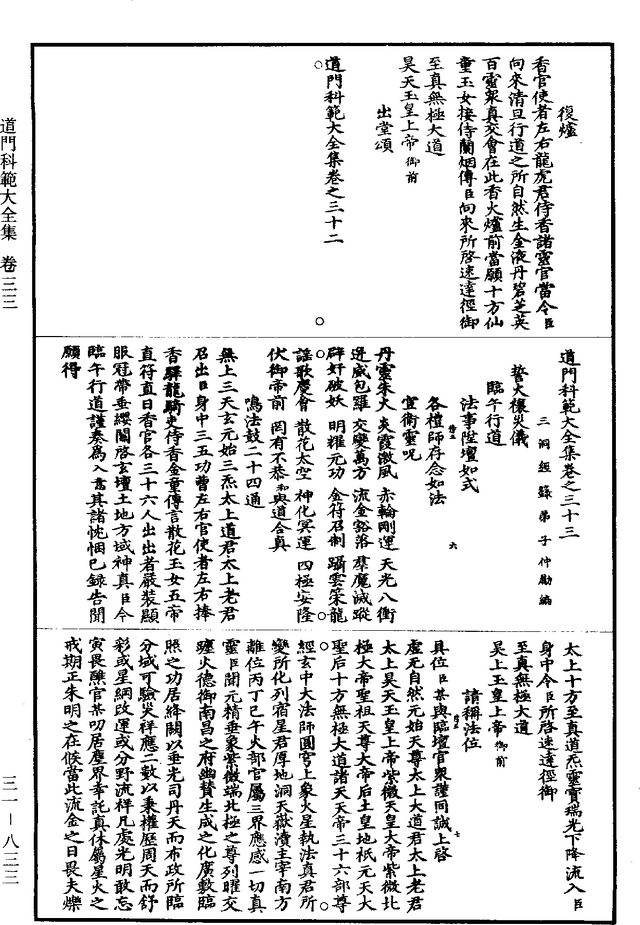 復爐
香官使者左右龍虎君侍香諸靈官當令臣
向來清旦行道之所自然生金液丹碧芝英
百靈衆真交會在此香火爐前當願十方仙
童玉女接侍蘭烟傳臣向來所啓速達徑御
至真無極大道
昊天玉皇上帝御前
出堂頌
道門科範大全集卷之三十二
道門科範大全集卷之三十三
三洞經籙弟子仲勵編
誓火禳災儀
臨午行道
法事陞壇如式
各禮師存念如法
宣衛靈呪
丹靈朱火 炎霞激風 赤輪剛運 天光八衝
迅威包羅 交變萬方 流金豁落 羣魔滅蹤
辟奸破妖 明耀元功 金符召制 躡雲策龍
謡歌慶會 散花太空 神化冥運 四極安隆
伏御帝前 罔有不恭 和與道合真
鳴法鼓二十四通
無上三天玄元始三炁太上道君太上老君
召出臣身中三五功曹左右官使者左右捧
香驛龍騎吏侍香金童傳言散花玉女五帝
直符直日香官各三十六人出出者嚴裝顯
服冠帶垂纓關啓玄壇土地方域神真臣今
臨午行道謹奏爲入意其諸忱悃已錄告聞
願得
太上十方至真道炁靈寶瑞光下降流入臣
身中令臣所啓速達徑御
至真無極大道
昊上玉皇上帝御前
請稱法位
具位臣某與臨壇官衆謹同誠上啓
虛无自然元始天尊太上大道君太上老君
太上昊天玉皇上帝紫微天皇大帝紫微北
極大帝聖祖天尊大帝后土皇地祇元天大
聖后十方無極大道諸天天帝三十六部尊
經玄中大法師圓穹上象火星執法真君所
變所化列宿星君厚地洞天嶽瀆主宰南方
離位丙丁巳午火部官屬三界應感一切真
靈臣聞元精垂象紫微端北極之尊列曜交
躔火德御南昌之府幽賛生成之化廣敷臨
照之功居絳闕以垂光司丹天而布政所臨
分域可驗災祥應二數以秉權歷周天而舒
彩或星綱改運或分野流祥凡處光明敢忘
寅畏醮官某叨居塵界幸託真休屬星火之
戒期正朱明之在候當此流金之日畏夫爍
道門科範大全集 卷三三
三一－八三三